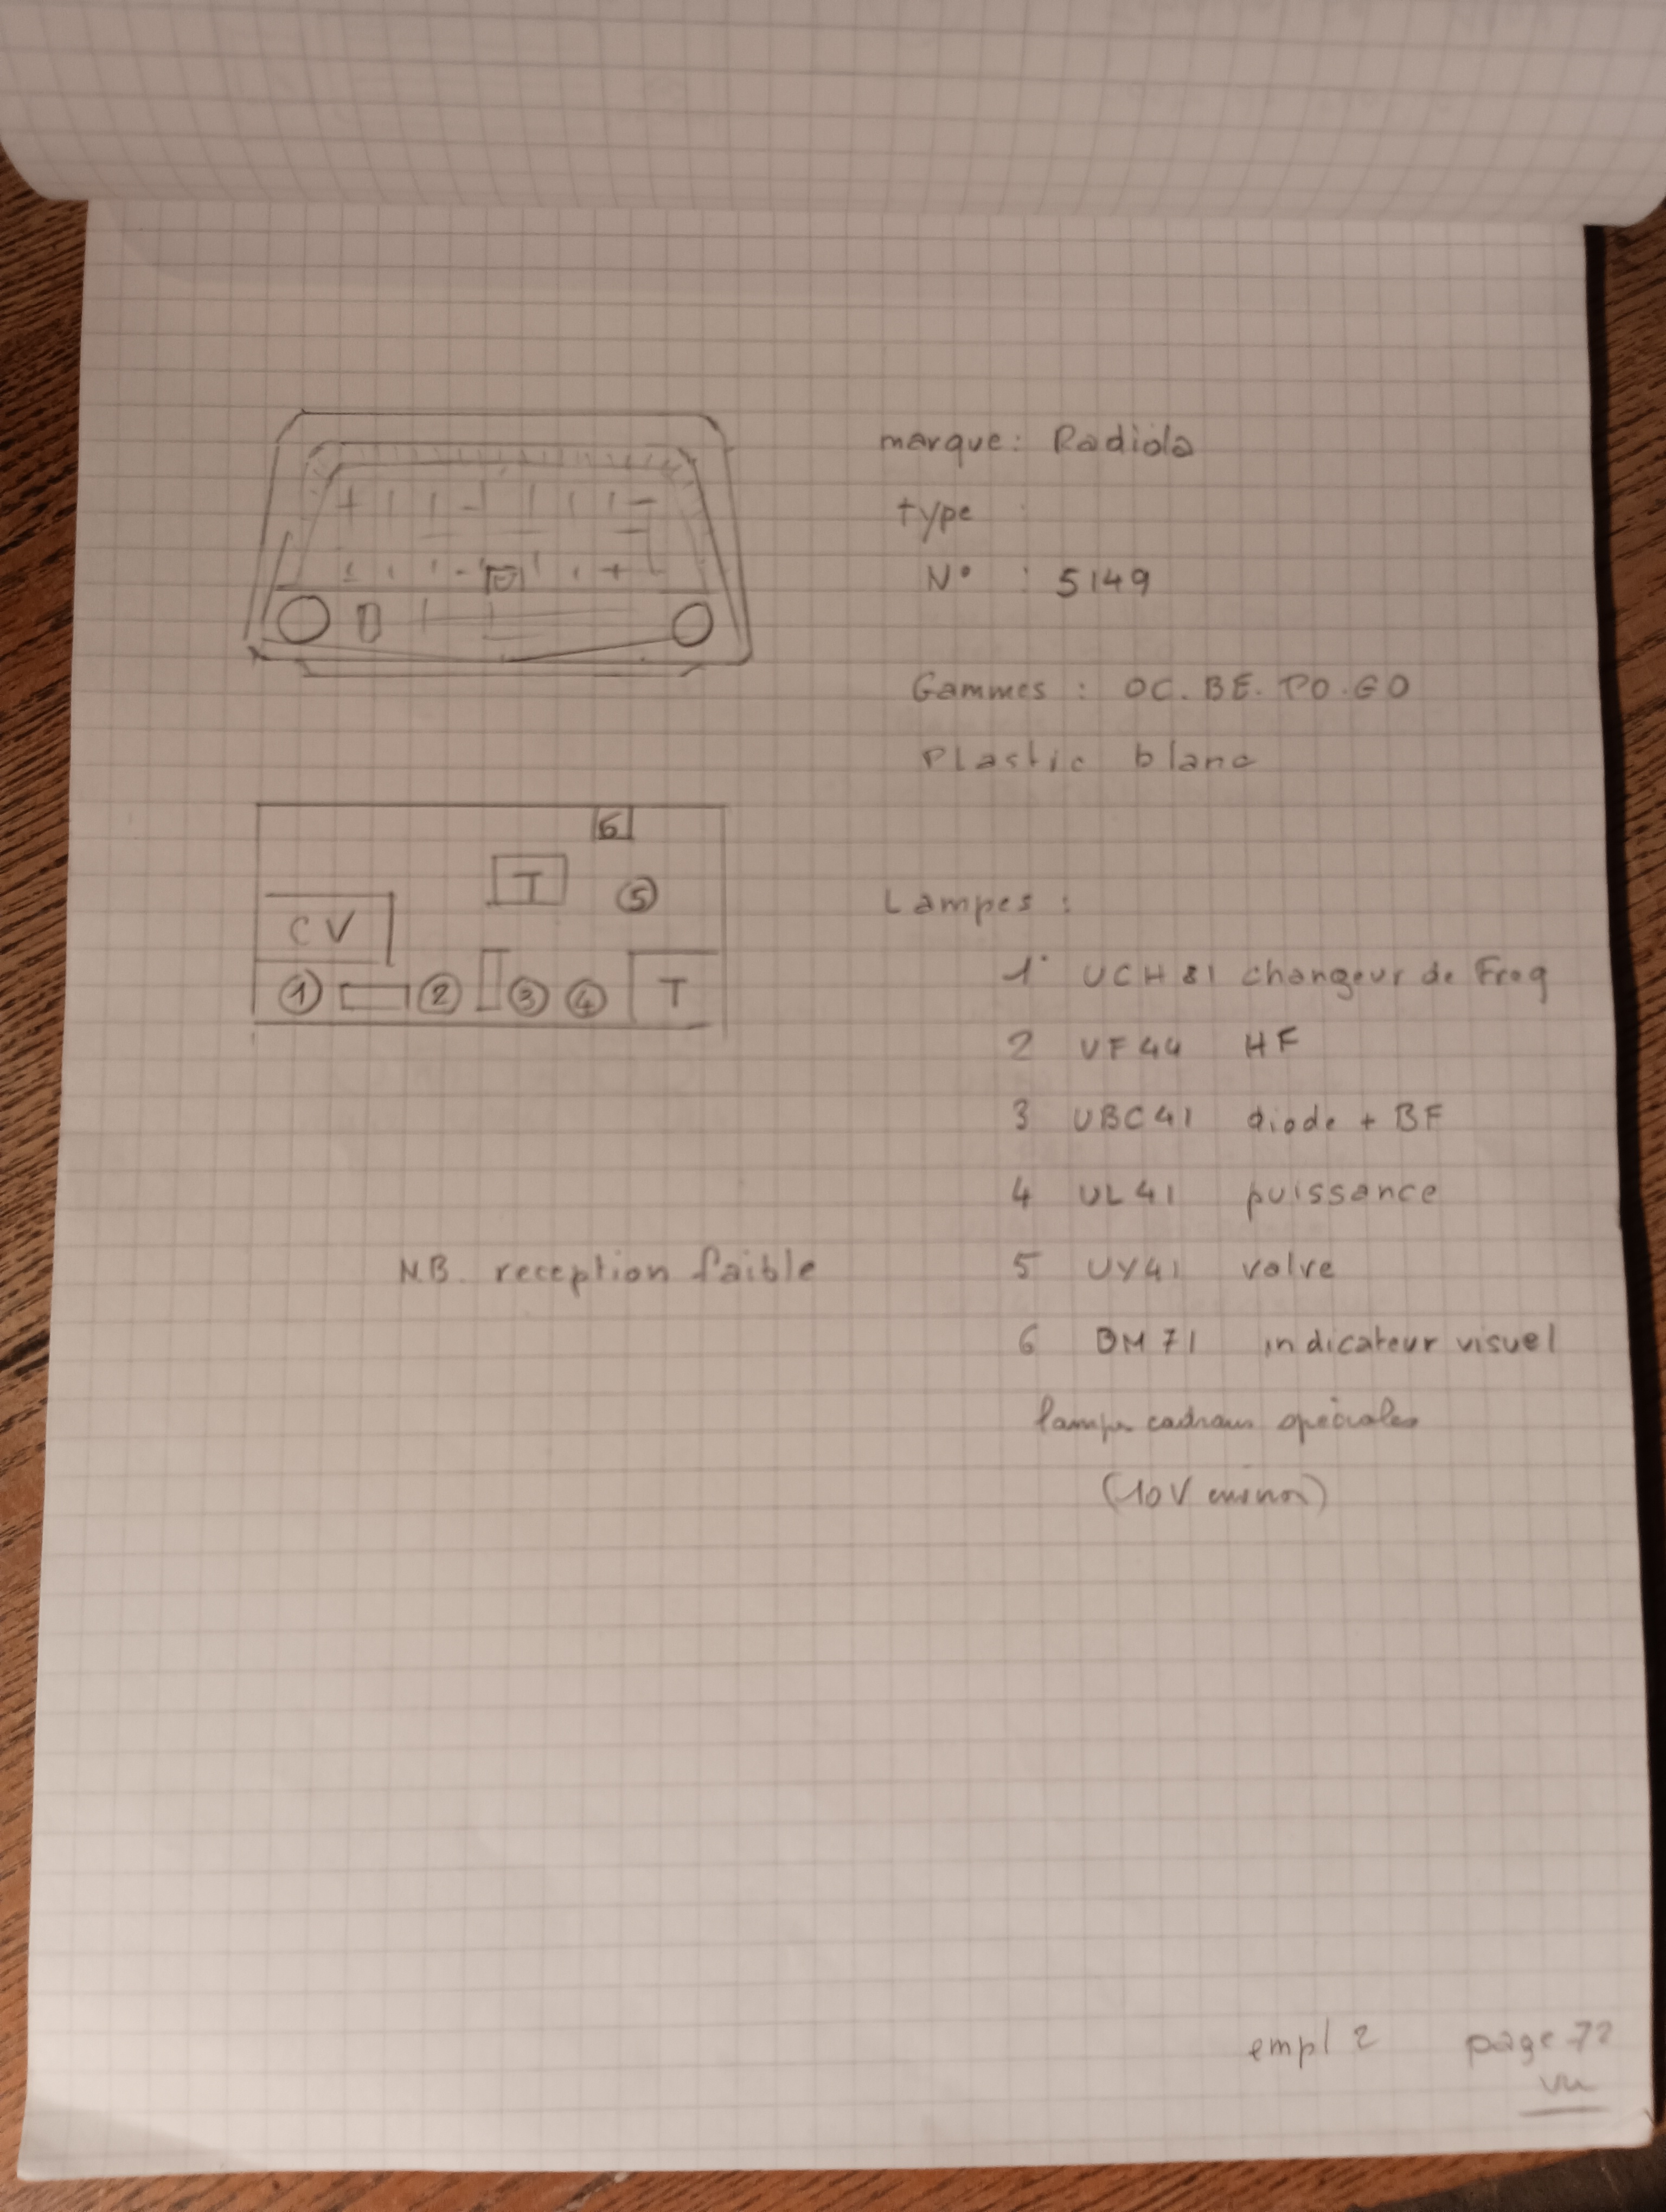 marque : Radiola
type :
N° : 5149
Gammes : OC. BE. PO. GO
Plastic blanc
6
T
5
CV
1 2 3 4 T
Lampes :
1 UCH81 changeur de Freq
2 UF44 HF
3 UBC41 diode + BF
4 UL41 puissance
N.B. reception faible
5 UY41 valve
6 DM71 indicateur visuel
lampe cadrans spéciales
(10V
empl 2 page 72
vu